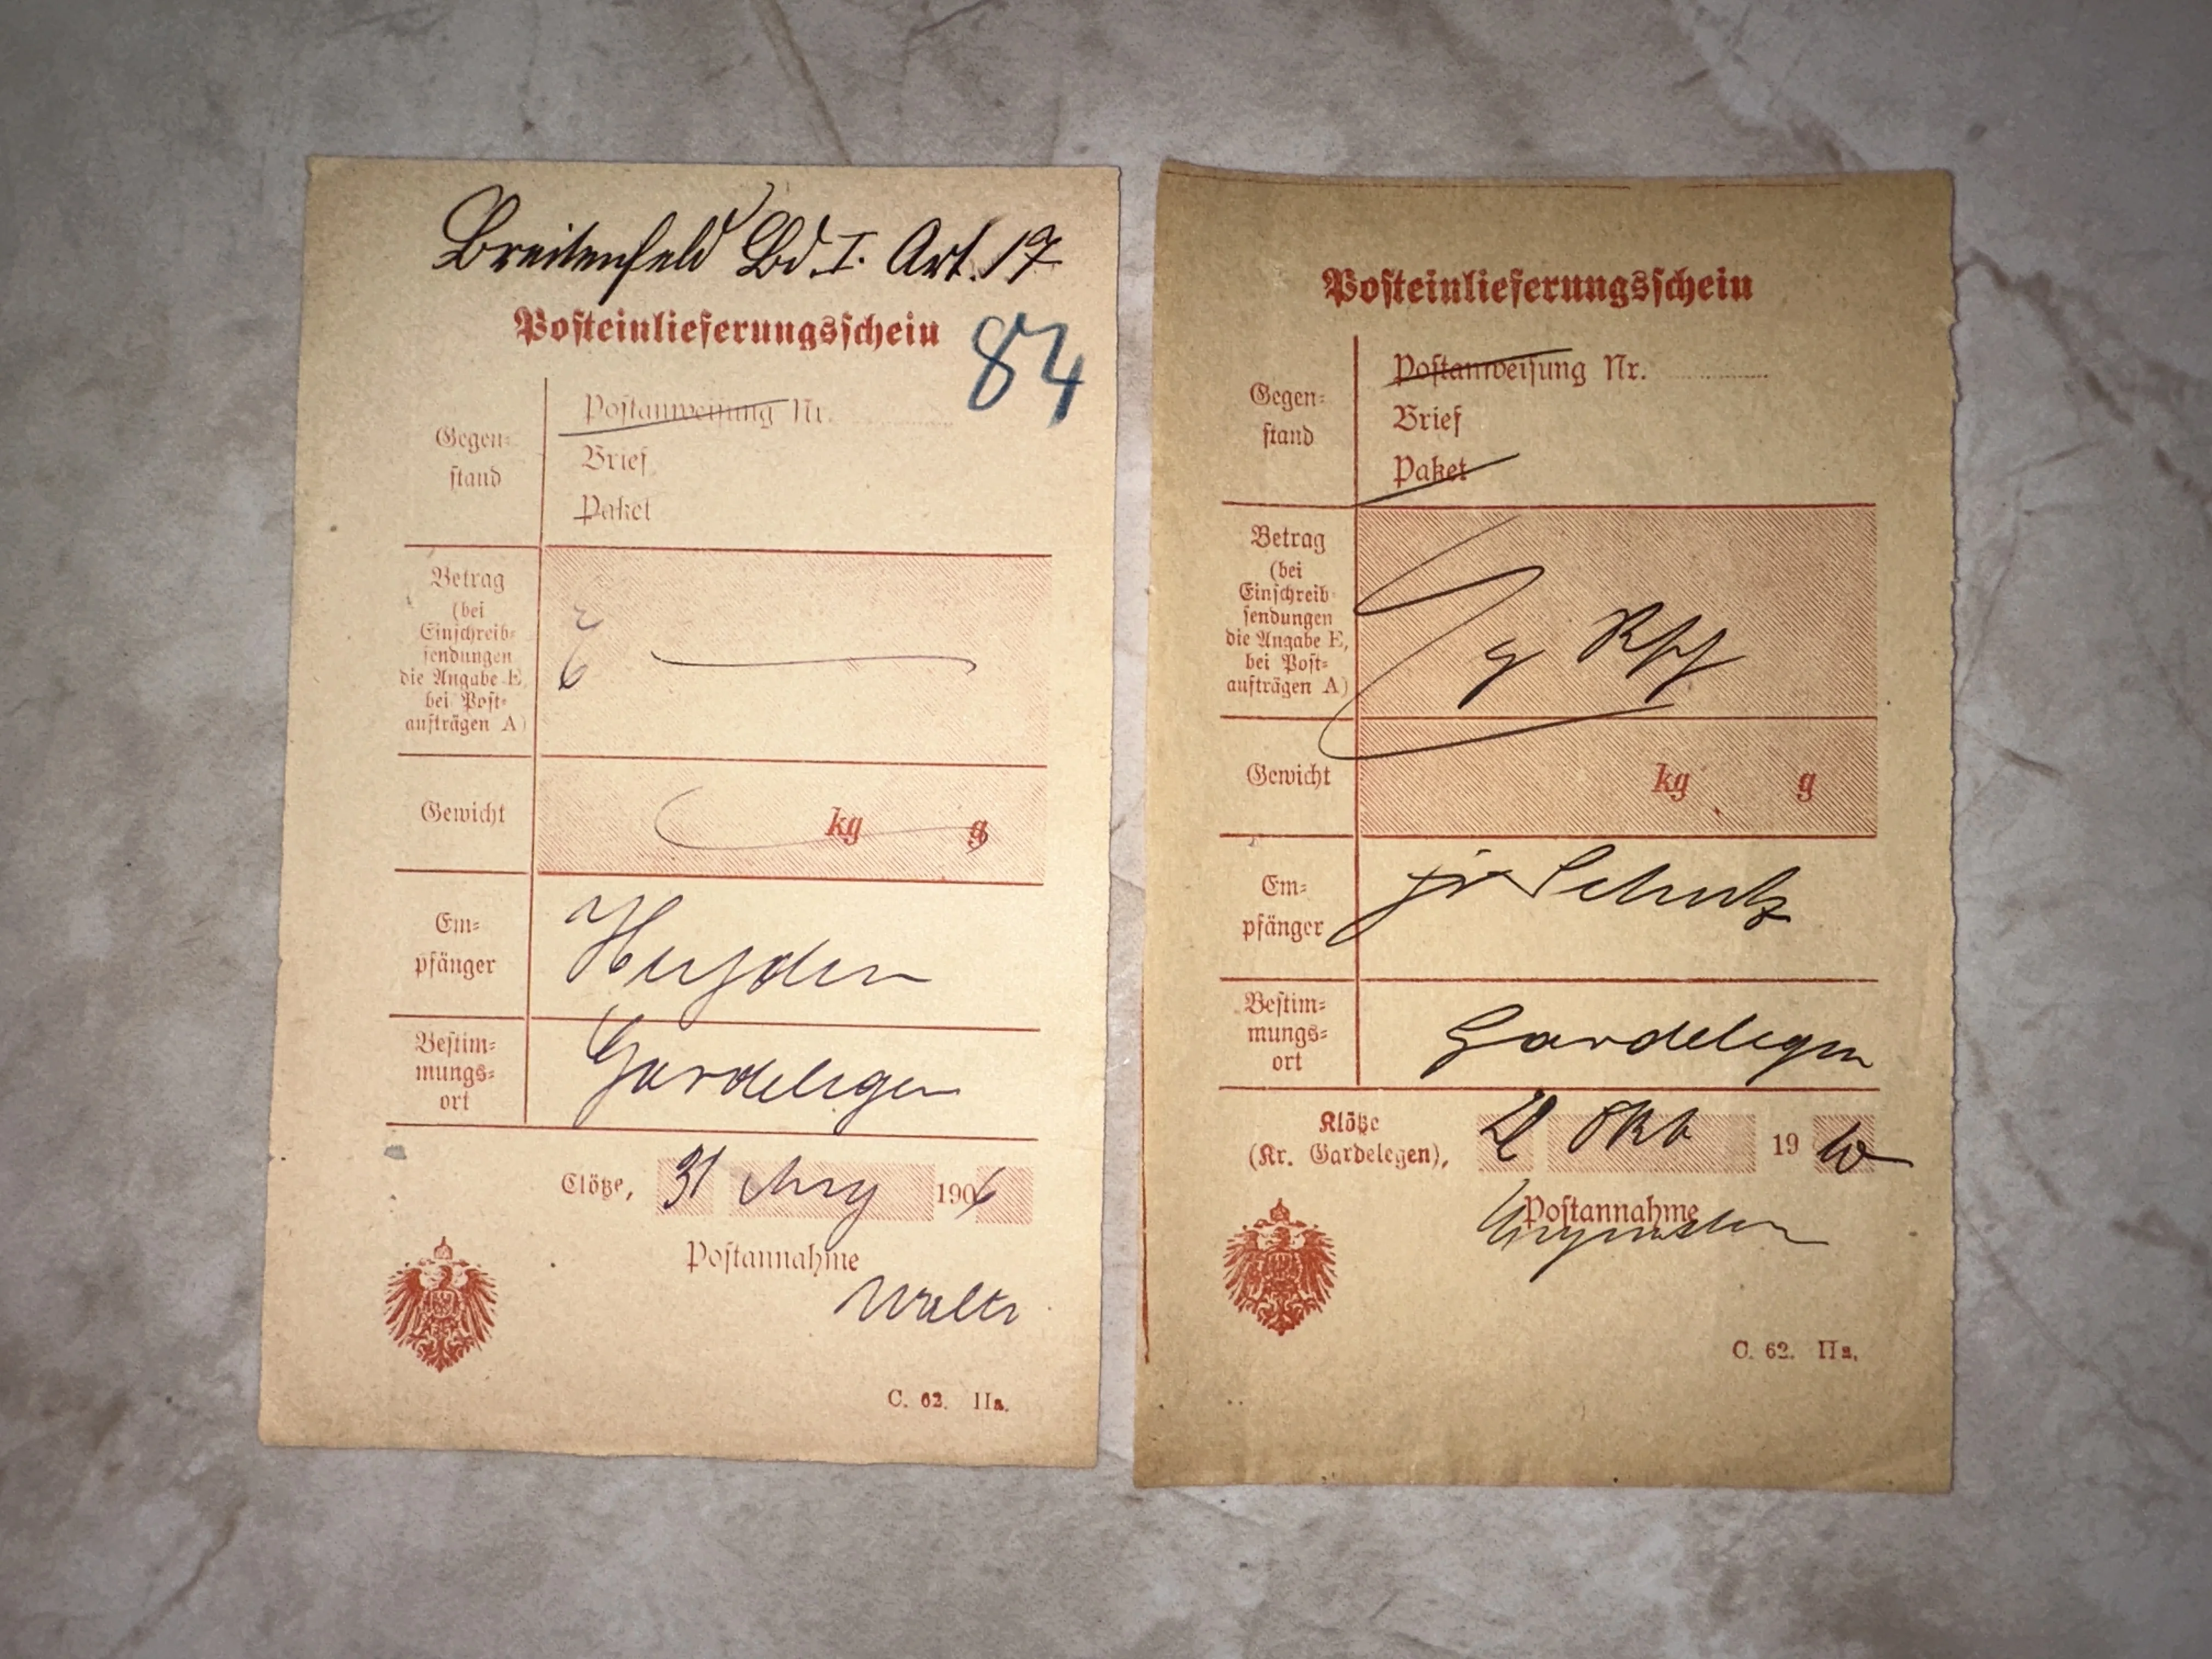 Breitenfeld Bd. I. Art. 17
Posteinlieferungsschein
84
Gegen=
stand
Postanweisung Nr.
Brief
Paket
Betrag
(bei
Einschreib=
sendungen
die Angabe E,
bei Post=
aufträgen A)
E
Gewicht
kg g
Em=
pfänger
Bestim=
mungs=
ort
Gardelegen
Clötze, 31 1906
Postannahme
C. 62. IIa.
Posteinlieferungsschein
Gegen=
stand
Postanweisung Nr.
Brief
Paket
Betrag
(bei
Einschreib=
sendungen
die Angabe E,
bei Post=
aufträgen A)
Gewicht
kg g
Em=
pfänger
Schulz
Bestim=
mungs=
ort
Gardelegen
Klötze
(Kr. Gardelegen), Okt 19 10
Postannahme
C. 62. IIa.